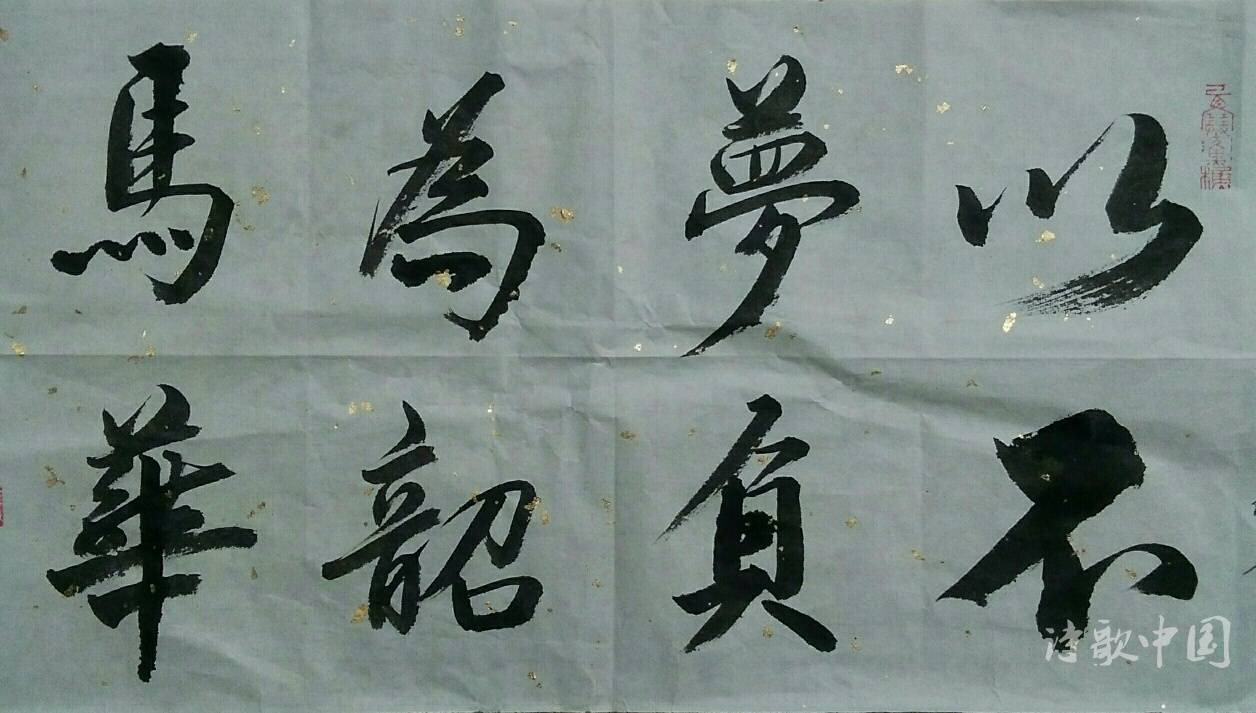 以夢為馬
不負韶華
诗歌中国